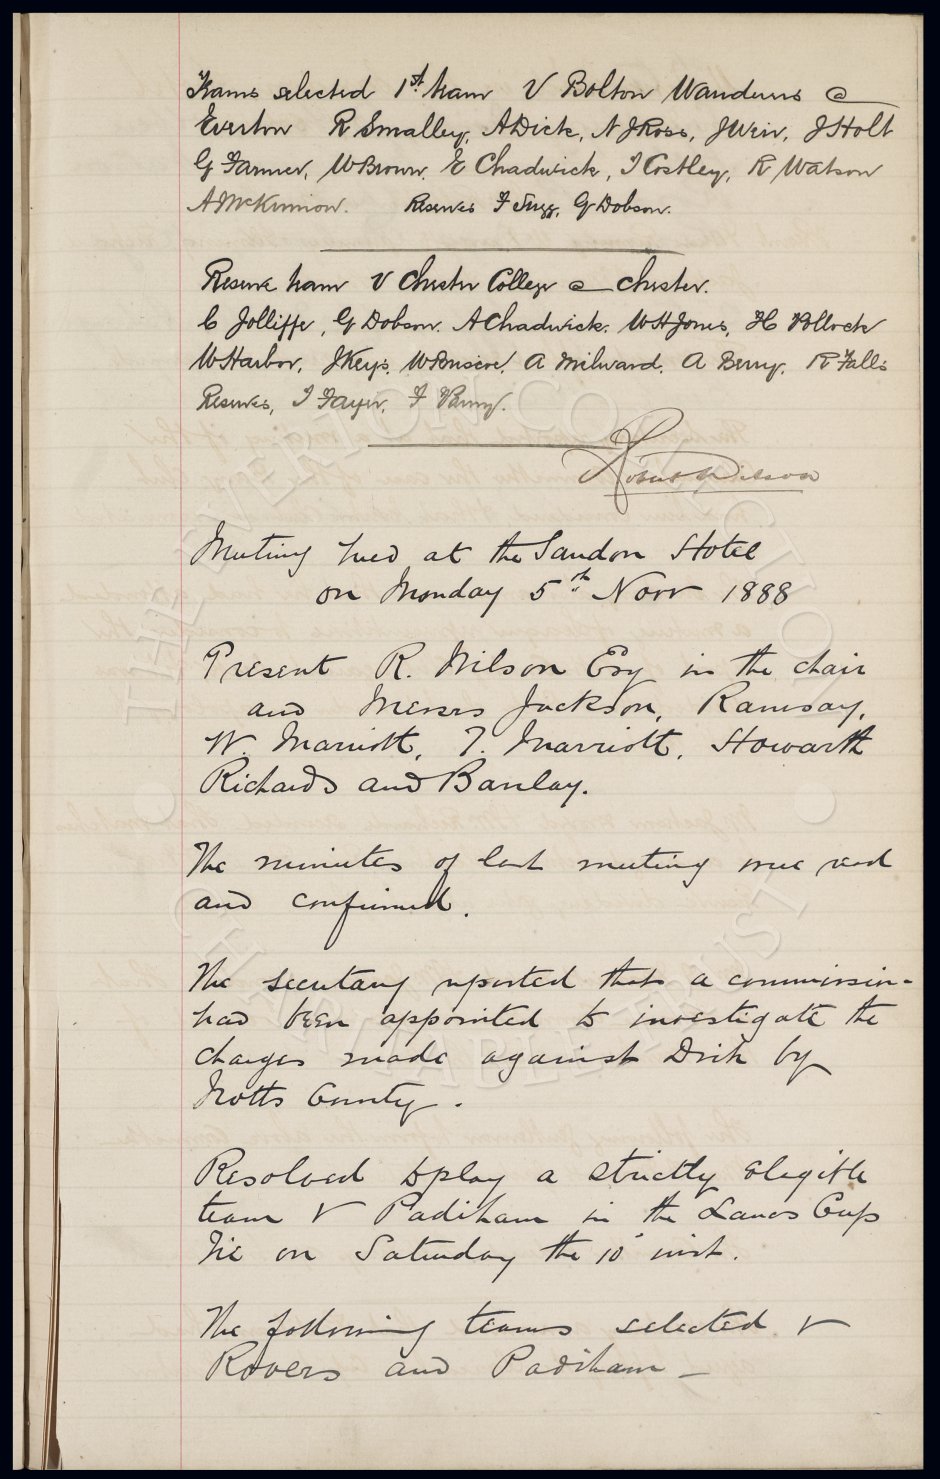 Teams selected 1st. team V Bolton Wanderers @
Everton R Smalley, A Dick, N J Ross, J Weir, J Holt
G Farmer, W Brown, E Chadwick, J Costley, R Watson
A McKinnon. Reserves F Sugg, G Dobson.
Reserve team V Chester College @ Chester.
C Jolliffe, G Dobson. A Chadwick. W H Jones, H Pollock
W Harbor, J Keys, W Briscoe, A Milward, A Berry, R Falls
Reserves, J Fayer, F Parry.
Robert Wilson
Meeting held at the Sandon Hotel
on Monday 5th Novr 1888
Present R. Wilson Esq in the chair
and Messrs Jackson, Ramsay,
W. Marriott, T. Marriott, Howarth
Richards and Barclay.
The minutes of last meeting were read
and confirmed.
The secretary reported that a commission
had been appointed to investigate the
charges made against Dick by
Notts County.
Resolved to play a strictly elegible
team V Padiham in the Lancs Cup
Tie on Saturday the 10 inst.
The following teams selected V
Rovers and Padiham —
THE EVERTON COLLECTION
CHARITABLE TRUST